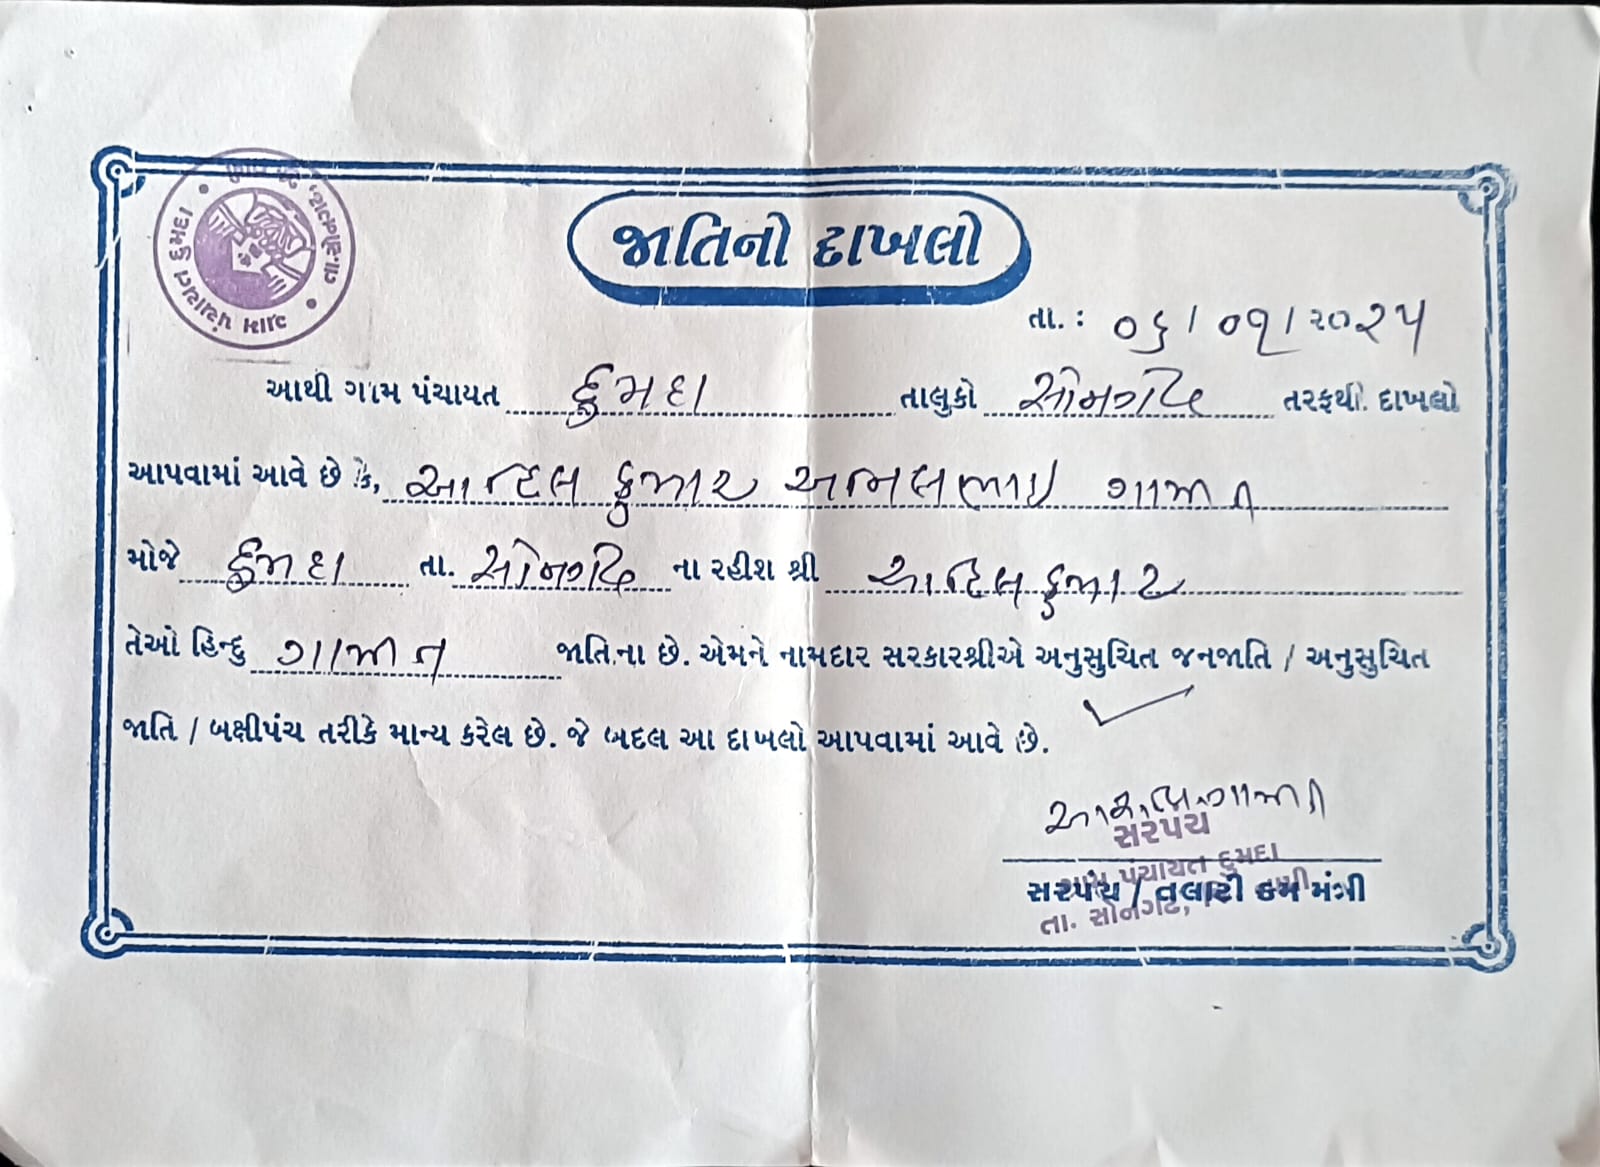 ગ્રામ પંચાયત દુમદા
તા.સોનગઢ,
જાતિનો દાખલો
તા. : ૦૬/૦૧/૨૦૨૫
આથી ગામ પંચાયત દુમદા તાલુકો સોનગઢ તરફથી દાખલો
આપવામાં આવે છે કે, કુમાર ગામીત
મોજે દુમદા તા. સોનગઢ ના રહીશ શ્રી
તેઓ હિન્દુ ગામીત જાતિના છે. એમને નામદાર સરકારશ્રીએ અનુસુચિત જનજાતિ / અનુસુચિત
જાતિ / બક્ષીપંચ તરીકે માન્ય કરેલ છે. જે બદલ આ દાખલો આપવામાં આવે છે.
સરપંચ
ગ્રામ પંચાયત દુમદા
સરપંચ / તલાટી કમ મંત્રી
તા. સોનગઢ,